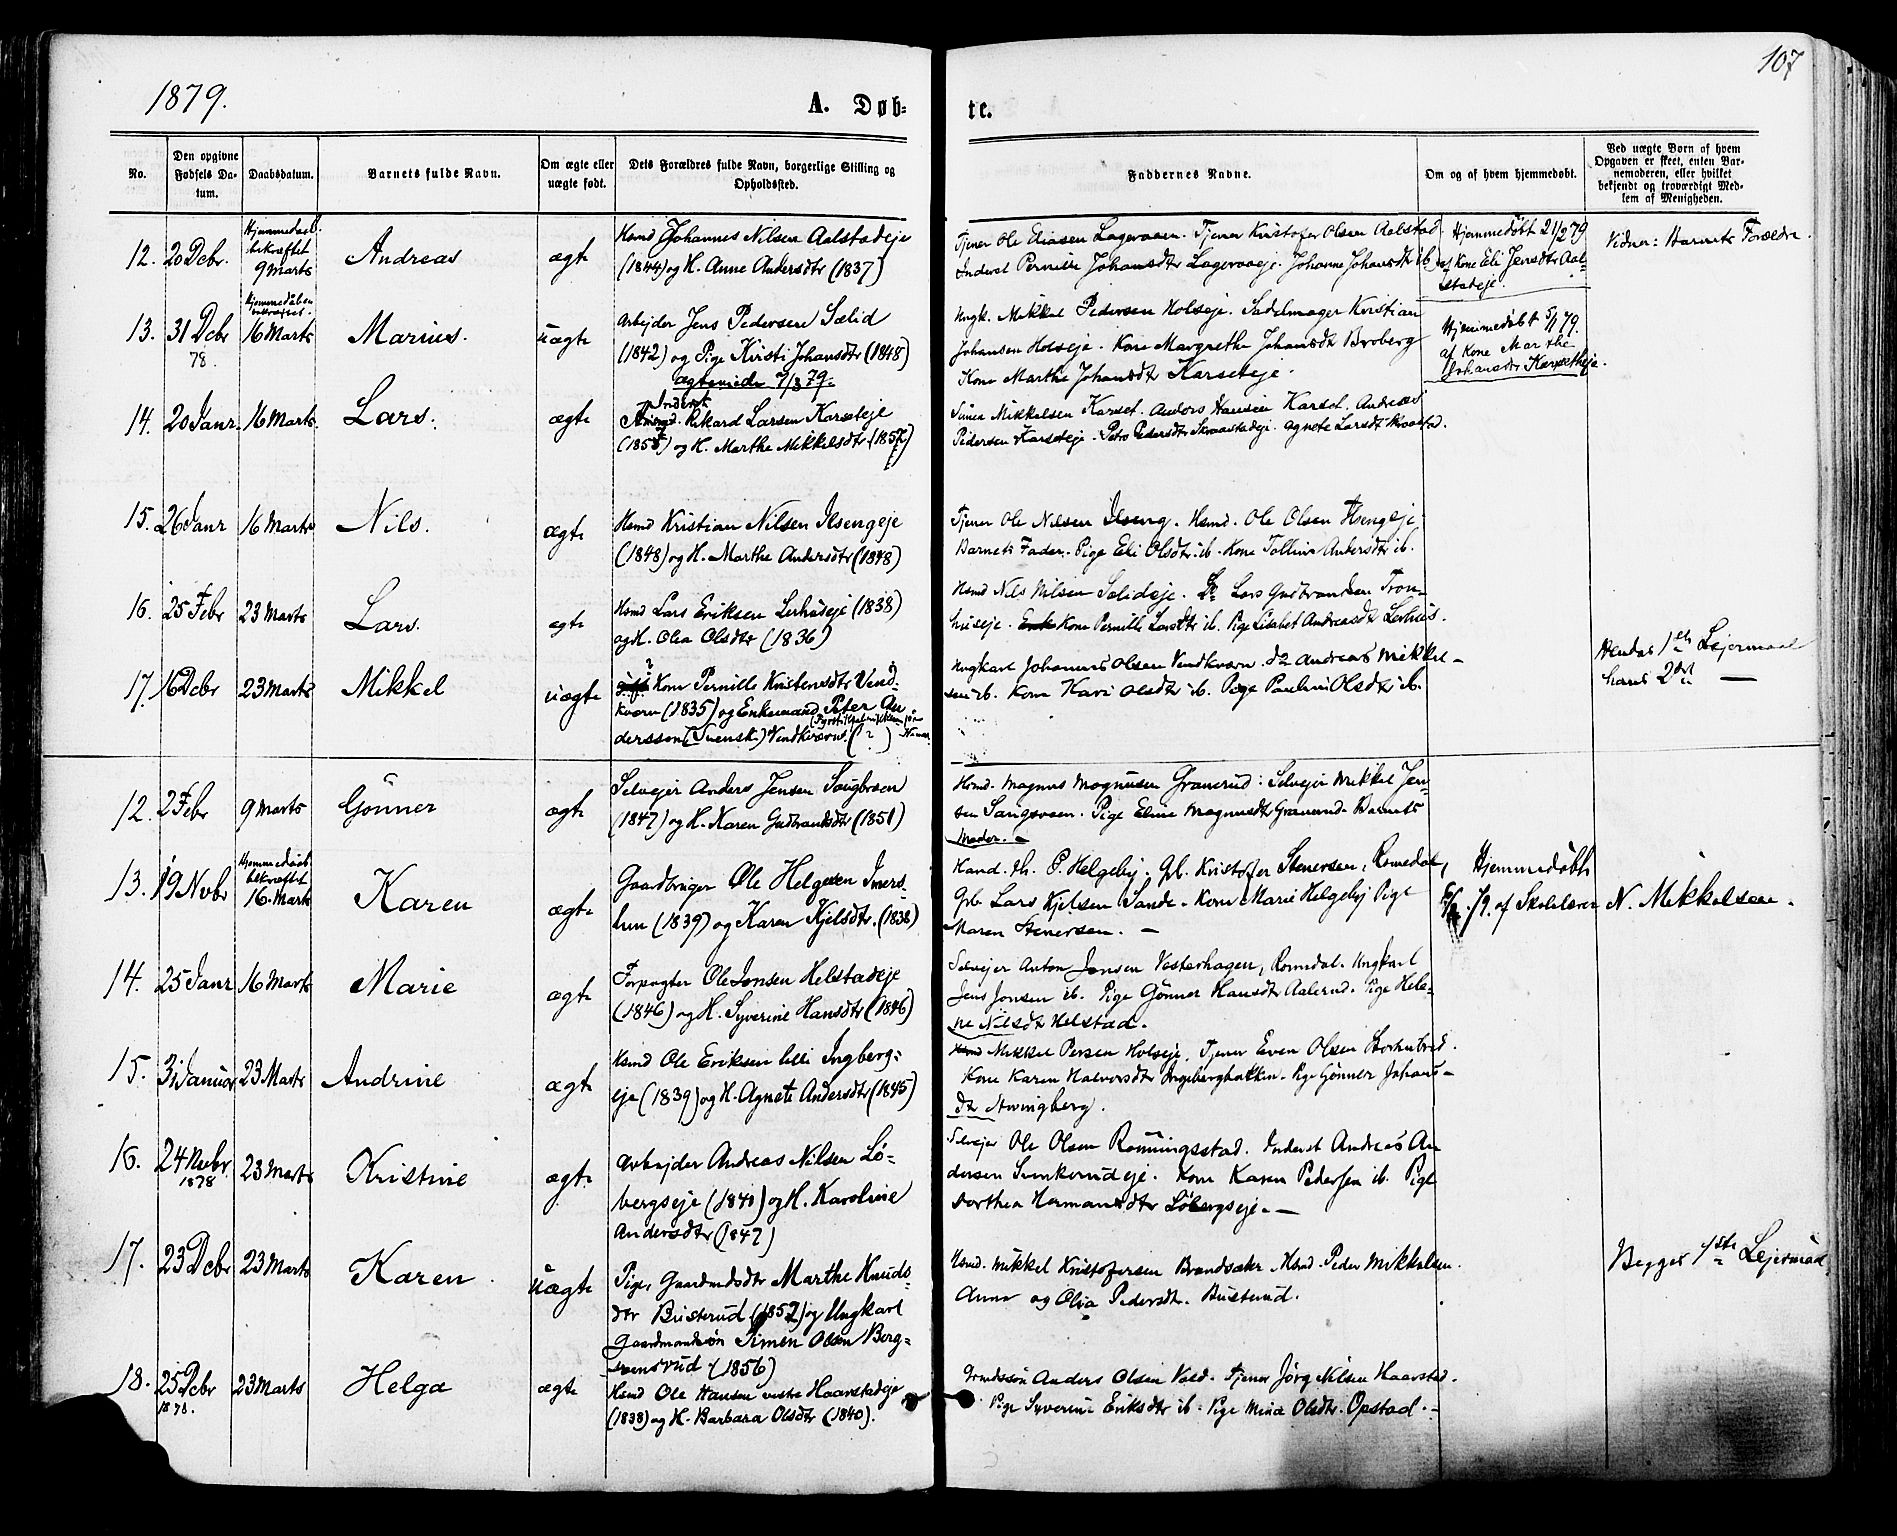 1879.
A. Døb-
te.
107
No.
Den opgivne Fødsels Da-
tum.
Daabsdatum.
Barnets fulde Navn.
Om ægte eller
uægte født.
Dets Forældres fulde Navn, borgerlige Stilling og
Opholdssted.
Faddernes Navne.
Om og af hvem hjemmedøbt.
Ved uægte Børn af hvem
Opgaven er skeet, enten Bar-
nemoderen, eller hvilket
bekjendt og troværdigt Med-
lem af Menigheden.
12. 20 Dcbr. Hjemmedaab
bekræftet
9 Marts
Andreas
ægte
Hsmd Johannes Nilsen Aalstadeje
(1844) og H. Anne Andersdtr (1837)
Tjener Ole Eliasen Lageraaen. Tjener Kristofer Olsen Aalstad
Inderst Pernille Johansdtr Lageraaeje. Johanne Johansdtr ib
Hjemmedøbt 21/2 79
af Kone Eli Jensdtr Aal-
stadeje.
Vidner: Barnets Forældre.
13. 31 Dcbr
78.
Hjemmedåben
bekræftet
16 Marts
Marius.
uægte
Arbejder Jens Pedersen Sælid
(1842) og Pige Kirsti Johansdtr (1848)
ægteviede 7/3 79.
Ungk. Mikkel Pedersen Holseje. Sadelmager Kristian
Johansen Holseje. Kone Margrethe Johansdtr Broberg
Kone Marthe Johansdtr Karseteje.
Hjemmedøbt 5/1 79.
af Kone Marthe
Johansdtr Karseteje.
14. 20 Janr 16 Marts. Lars. ægte
Inderst
Rikard Larsen Karseteje
(1858) og H. Marthe Mikkelsdtr (1857)
Simen Mikkelsen Karset. Anders Hansen Karset. Andreas
Pedersen Karseteje. Petra Pedersdtr Skraastadeje. Agnete Larsdt Skraastad.
15. 26 Janr 16 Marts Nils. ægte
Hsmd Kristian Nilsen Ilsengeje
(1848) og H. Marthe Andersdtr (1848)
Tjener Ole Nilsen Ilseng. Hsmd. Ole Olsen Ilsengeje,
Barnets Fader. Pige Eli Olsdtr ib. Kone Tolline Andersdtr ib.
16. 25 Febr 23 Marts Lars. ægte
Hsmd Lars Eriksen Lerhuseje (1838)
og H. Olea Olsdtr (1836)
Hsmd Nils Nilsen Sælideje. Do Lars Gudbrandsen Tron-
huseje. Kone Pernille Larsdtr ib. Pige Lisabet Andreasdtr Lerhus.
17. 16 Dcbr 23 Marts Mikkel uægte
Kone Pernille Kristensdtr Vind-
kværn (1835) og Enkemand Peter An
dersson (Svensk) Vindkværn. (?)
Ungkarl Johannes Olsen Vindkværn. Do Andreas Mikkel-
sen ib. Kone Kari Olsdtr ib. Pige Pauline Olsdtr ib.
Hendes 1ste Lejermaal
hans 2det —
12. 2 Febr 9 Marts Gønner ægte
Selvejer Anders Jensen Saugbraaen
(1847) og H. Karen Gudbrandsdtr (1851)
Hsmd. Magnus Magnusen Granerud. Selvejer Mikkel Jen-
sen Sangvaaen. Pige Eline Magnusdtr Granerud. Barnets
Moder. —
13. 19 Nvbr Hjemmedaab
bekræftet
16. Marts
Karen
ægte
Gaardbruger Ole Helgesen Imers-
lun (1839) og Karen Kjelsdtr. (1838)
Kand. th. P. Helgeby. Gb. Kristofer Stenersen, Romedal,
Gb. Lars Kjelsen Sande. Kone Marie Helgeby Pige
Maren Stenersen. —
Hjemmedøbt
79. af Skolelærer N. Mikkelsen.
14. 25 Janr 16 Marts Marie ægte
Forpagter Ole Jonsen Helstadeje
(1846) og H. Syverine Hansdtr (1846)
Selvejer Anton Jensen Vesterhagen, Romdal. Ungkarl
Jens Jonsen ib. Pige Gønner Hansdtr Aalerud. Pige Hele-
ne Nilsdtr Helstad.
15. 31 Januar 23 Marts Andrine ægte
Hsmd Ole Eriksen lille Ingberg-
eje (1839) og H. Agnete Andersdtr (1845)
Mikkel Persen Holseje. Tjener Even Olsen Storhubred.
Kone Karen Halvorsdtr Ingebergbakken. Pige Gønner Johans-
dtr Ingberg.
16. 24 Nvbr
1878
23 Marts Kristine ægte
Arbejder Andreas Nilsen Lø-
bergseje (1840) og H. Karoline
Andersdtr (1847)
Selvejer Ole Olsen Rønningsstad. Inderst Andreas An-
dersen Svenkerudeje. Kone Karen Pedersen ib. Pige
Dorthea Hermansdtr Løbergseje. —
17. 23 Dcbr 23 Marts Karen uægte
Pige, Gaardmdsdtr Marthe Knuds-
dtr Busterud (1852) og Ungkarl
Gaardmandssøn Simen Olsen Berg-
svensrud (1856)
Hsmd. Mikkel Kristofersen Brandsakr. Hsmd. Peder Mikkelsen.
Anne og Olia Pedersdtr. Busterud.
Begges 1ste Lejermaal.
18. 25 Dcbr
1878.
23 Marts Helga ægte
Hsmd Ole Hansen vestre Haarstadeje
(1838) og H. Barbara Olsdtr (1840).
Grmdssøn Anders Olsen Vold. Tjener Jørg. Nilsen Haarstad.
Pige Syverine Eriksdtr ib. Pige Mina Olsdtr. Opstad. —